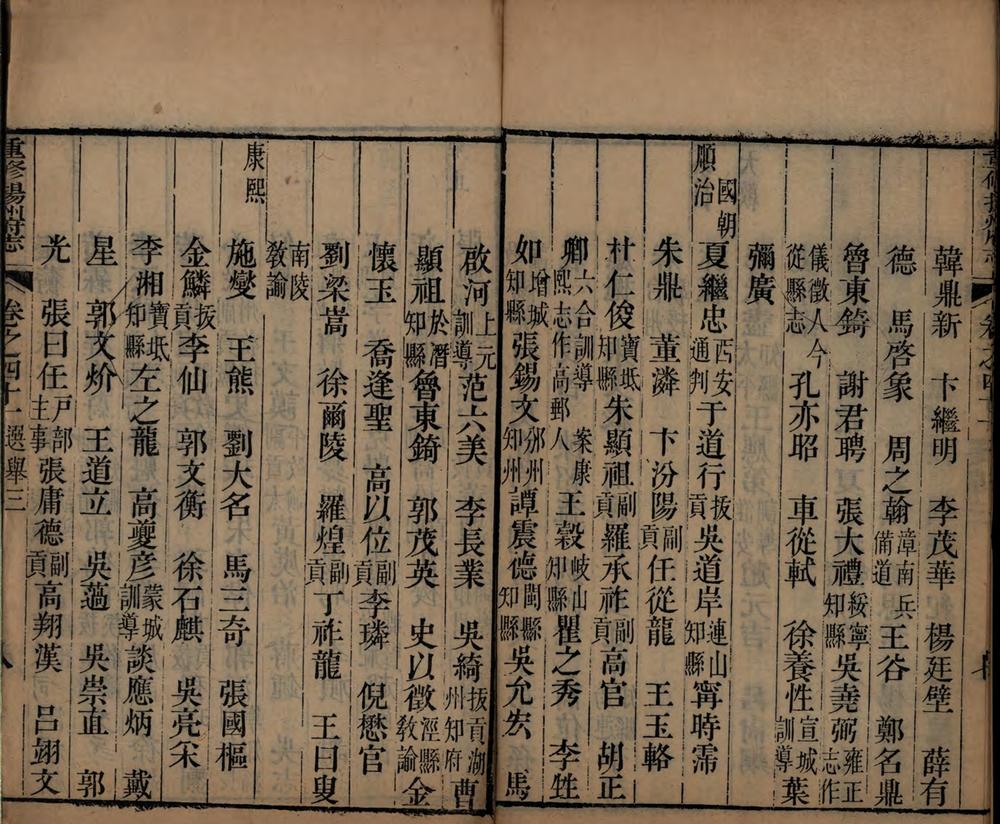 韓鼎新 卞繼明 李茂華 楊廷壁 薛有
德 馬啓象 周之翰漳南兵備道王谷 鄭名鼎
魯東錡 謝君聘 張大禮綏寧知縣吳堯弼雍正志作
儀徵人今從縣志孔亦昭 車從軾 徐養性宣城訓導葉
彌廣
國朝
順治夏繼忠西安通判于道行拔貢吳道岸連山知縣寗時霈
朱鼎 董潾 卞汾陽副貢任從龍 王玉輅
杜仁俊寶坻知縣朱顯祖副貢羅承祚副貢高官 胡正
卿六合訓導案康熙志作高郵人王穀岐山知縣瞿之秀 李甡
如增城知縣張錫文邠州知州譚震德閩縣知縣吳允宏 馬
啟河上元訓導范六美 李長業 吳綺拔貢湖州知府曹
顯祖於潛知縣魯東錡 郭茂英 史以徵涇縣教諭金
懷玉 喬逢聖 高以位副貢李璘 倪懋官
劉梁嵩 徐爾陵 羅煌副貢丁祚龍 王曰叟
南陵教諭
康熙施燮 王熊 劉大名 馬三奇 張國樞
金鱗拔貢李仙 郭文衡 徐石麒 吳亮宷
李湘寶坻知縣左之龍 高夔彦蒙城訓導談應炳 戴
星 郭文炌 王道立 吳薖 吳崇直 郭
光 張曰任戸部主事張庸德副貢高翔漢 呂翊文
重修揚州府志 卷之四十一 選舉三 八